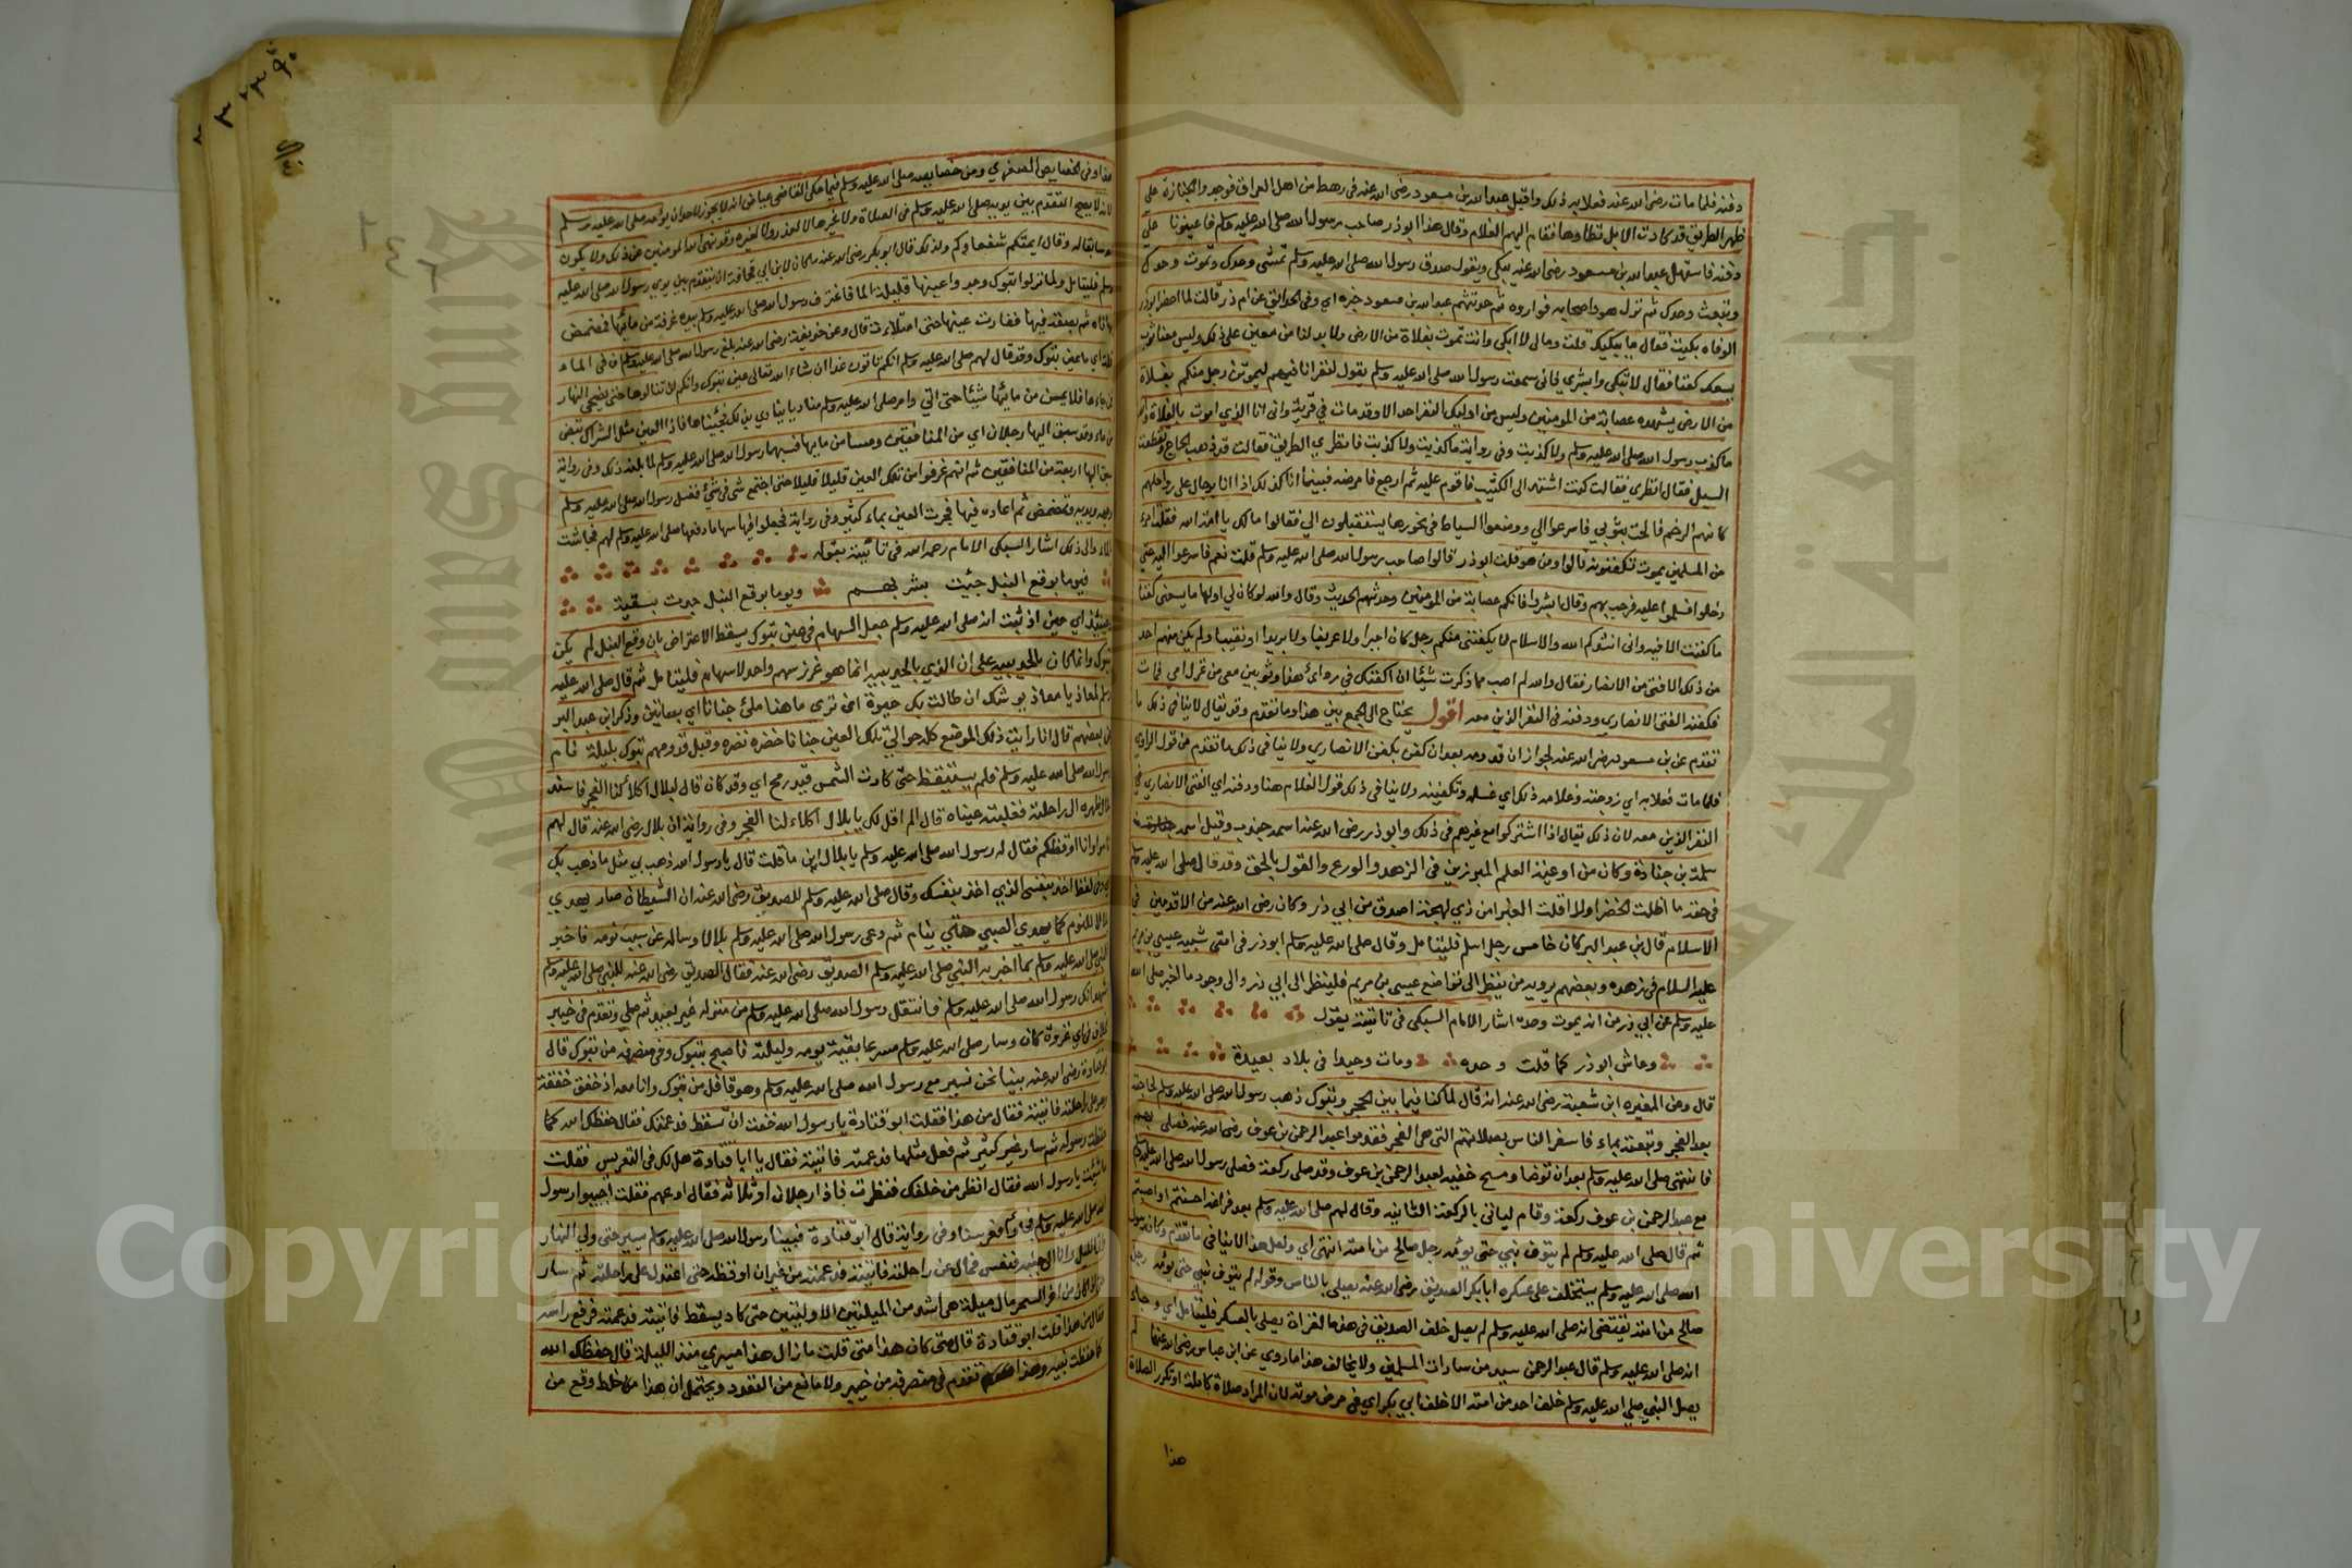 دفنه فلما مات رضى الله عنه فعلا به ذلك واقبل عبد الله بن مسعود رضى الله عنه فى رهط من اهل العراق فوجدوا الجنازة على
ظهر الطريق قد كادت الابل تطاوها فقام اليهم الغلام وقال هذا ابو ذر صاحب رسول الله صلى الله عليه وسلم فاعينونا على
دفنه فاستهل عبد الله بن مسعود رضى الله عنه يبكى ويقول صدق رسول الله صلى الله عليه وسلم تمشى وحدك وتموت وحدك
وتبعث وحدك ثم نزل هو واصحابه فواروه ثم حدثهم عبد الله بن مسعود خبره اى وفى الحدائق عن ام ذر قالت لما احضر ابو ذر
الوفاه بكيت فقال ما يبكيك قلت ومالى لا ابكى وانت تموت بفلاة من الارض ولا بد لنا من معين على ذلك وليس معنا ثوب
يسعك كفنا فقال لا تبكى وابشرى فانى سمعت رسول الله صلى الله عليه وسلم يقول لنفر انا فيهم ليموتن رجل منكم بفلاة
من الارض يشهده عصابة من المومنين وليس من اوليك النفر احد الا وقد مات فى قرية وانى انا الذى اموت بالفلاة والله
ما كذب رسول الله صلى الله عليه وسلم ولا كذبت وفى رواية ما كذبت ولا كذبت فانظرى الطريق فقالت قد ذهب الحاج وتقطعت
السبل فقال انظرى فقالت كنت اشتد الى الكثيب فاقوم عليه ثم ارجع فامرضه فبينما انا كذلك اذا انا برجال على رواحلهم
كانهم الرخم فالحت بثوبى فاسرعوا الى ووضعوا السياط فى نحورها يستقبلون الى فقالوا مالك يا امة الله فقلت امرء
من المسلمين يموت تكفنونه قالوا ومن هو قلت ابو ذر قالوا صاحب رسول الله صلى الله عليه وسلم قلت نعم فاسرعوا اليه حتى
دخلوا فسلموا عليه فرحب بهم وقال ابشروا فانكم عصابة من المومنين وحدثهم الحديث وقال والله لو كان لى اولها ما يسعنى كفنا
ما كفنت الا فيه وانى انشدكم الله والاسلام لا يكفننى منكم رجل كان اميرا ولا عريفا ولا بريدا او نقيبا ولم يكن منهم احد
من ذلك الا فتى من الانصار فقال والله لم اصب مما ذكرت شيئا انا اكفنك فى ردائى هذا وثوبين معى من غزل امى فمات
فكفنه الفتى الانصارى ودفنه فى النفر الذين معه اقول يحتاج الى الجمع بين هذا وما تقدم وقد يقال لا ينافى ذلك ما
تقدم عن بن مسعود رضى الله عنه لجواز ان قدومه بعد ان كفن بكفن الانصارى ولا ينافى ذلك ما تقدم من قول الراوى
فلما مات فعلا به اى زوجته وغلامه ذلك اى غسله وتكفينه ولا ينافى ذلك قول الغلام هنا ودفنه اى الفتى الانصارى فى
النفر الذين معه لان ذلك يقال اذا اشتركوا مع غيرهم فى ذلك وابو ذر رضى الله عنه اسمه جندب وقيل اسمه
سلمة بن جنادة وكان من اوعية العلم المبرزين فى الزهد والورع والقول بالحق وقد قال صلى الله عليه وسلم
فى حقه ما اظلت الخضرا ولا اقلت الغبرا من ذى لهجة اصدق من ابى ذر وكان رضى الله عنه من الاقدمين فى
الاسلام قال بن عبد البر كان خامس رجل اسلم فليتامل وقال صلى الله عليه وسلم ابو ذر فى امتى شبيه عيسى بن مريم
عليه السلام فى زهده وبعضهم يرويه من ينظر الى تواضع عيسى بن مريم فلينظر الى ابى ذر والى وجود ما اخبر صلى الله
عليه وسلم عن ابى ذر من انه يموت وحده اشار الامام السبكى فى تائيته بقول
وعاش ابو ذر كما قلت وحده ومات وحيدا فى بلاد بعيدة
قال وعن المغيره ابن شعبة رضى الله عنه انه قال لما كنا فيما بين الحجر وتبوك ذهب رسول الله صلى الله عليه وسلم لحاجته
بعد الفجر وتبعته بماء فاسفر الناس بصلاتهم التى هى الفجر فقدموا عبد الرحمن بن عوف رضى الله عنه فصلى بهم
فانتهى صلى الله عليه وسلم بعد ان توضا ومسح خفيه لعبد الرحمن بن عوف وقد صلى ركعة فصلى رسول الله صلى الله عليه وسلم
مع عبد الرحمن بن عوف ركعة وقام لياتى بالركعة الثانيه وقال لهم صلى الله عليه وسلم بعد فراغه احسنتم او اصبتم
ثم قال صلى الله عليه وسلم لم يتوف نبى حتى يؤمه رجل صالح من امته انتهى اى ولعل هذا لا ينافى ما تقدم وكان رسول
الله صلى الله عليه وسلم يستخلف على عسكره ابا بكر الصديق رضى الله عنه يصلى بالناس وقوله لم يتوف نبى حتى يؤمه رجل
صالح من امته يقتضى انه صلى الله عليه وسلم لم يصل خلف الصديق فى هذه الغزاة يصلى بالعسكر فليتامل اى وجاء
انه صلى الله عليه وسلم قال عبد الرحمن سيد من سادات المسلمين ولا يخالف هذا ما روى عن ابن عباس رضى الله عنهما لم
يصل النبى صلى الله عليه وسلم خلف احد من امته الا خلف ابى بكر اى فى مرض موته لان المراد صلاة كاملة او تكرر الصلاة
هذا
هذا وفى الخصايص الصغرى ومن خصايصه صلى الله عليه وسلم فيما حكى القاضى عياض انه لا يجوز لاحد ان يؤمه صلى الله عليه وسلم
لانه لا يصح التقدم بين يديه صلى الله عليه وسلم فى الصلاة ولا غيرها لا لعذر ولا لغيره وقد نهى الله المومنين عن ذلك ولا يكون
وقال ايمتكم شفعاوكم ولذلك قال ابو بكر رضى الله عنه ما كان لابن ابى قحافة ان يتقدم بين يدى رسول الله صلى الله عليه
وسلم فليتامل ولما نزلوا تبوك وجدوا عينها قليلة الما فاغترف رسول الله صلى الله عليه وسلم بيده غرفة من مائها فمضمض
بها فاه ثم بصقه فيها ففارت عينها حتى امتلاءت قال وعن حذيفة رضى الله عنه بلغ رسول الله صلى الله عليه وسلم ان فى الماء
قلة اى بعين تبوك وقد قال لهم صلى الله عليه وسلم انكم تاتون غدا ان شاء الله تعالى عين تبوك وانكم لا تنالوها حتى يضحى النهار
فمن جاءها فلا يمس من مائها شيئا حتى اتى وامر صلى الله عليه وسلم مناديا ينادى بذلك فجئناها فاذا العين مثل الشراك تبض
من ماء وقد سبق اليها رجلان اى من المنافقين ومسا من مايها فسبهما رسول الله صلى الله عليه وسلم لما بلغه ذلك وفى رواية
سبق اليها اربعة من المنافقين ثم انهم غرفوا من تلك العين قليلا قليلا حتى اجتمع شى فى شئ فغسل رسول الله صلى الله عليه وسلم
وجهه ويديه وتمضمض ثم اعاده فيها فجرت العين بماء كثير وفى رواية فجعلوا فيها سهاما دفعها صلى الله عليه وسلم لهم فجاشت
بالماء والى ذلك اشار السبكى الامام رحمه الله فى تائيته بقوله
فيوما بوقع النبل جئت بشربهم ويوما بوقع النبل جدت بسقية
وحينئذ اى حين اذ ثبت انه صلى الله عليه وسلم جعل السهام فى عين تبوك يسقط الاعتراض بان وقع النبل لم يكن
بتبوك وانما كان بالحديبيه على ان الذى بالحديبيه انما هو غرز سهم واحد لا سهام فليتامل ثم قال صلى الله عليه
وسلم لمعاذ يا معاذ يوشك ان طالت بك حيوة ان ترى ما هنا ملئ جنانا اى بساتين وذكر ابن عبد البر
عن بعضهم قال انا رايت ذلك الموضع كله حوالى تلك العين جنانا خضره نضره وقبل قدومهم تبوك بليلة نام
رسول الله صلى الله عليه وسلم فلم يستيقظ حتى كادت الشمس قيد رمح اى وقد كان قال لبلال اكلأ لنا الفجر فاسند
بلال ظهره الى راحلته فغلبته عيناه قال الم اقل لك يا بلال اكلاء لنا الفجر وفى رواية ان بلال رضى الله عنه قال لهم
ناموا وانا اوقظكم فقال له رسول الله صلى الله عليه وسلم يا بلال اين ما قلت قال يا رسول الله ذهب بى مثل ما ذهب بك
وفى لفظ اخذ بنفسى الذى اخذ بنفسك وقال صلى الله عليه وسلم للصديق رضى الله عنه ان الشيطان صار يهدى
بلالا للنوم كما يهدى الصبى حتى ينام ثم دعى رسول الله صلى الله عليه وسلم بلالا وساله عن سبب نومه فاخبر
النبى صلى الله عليه وسلم بما اخبر به النبى صلى الله عليه وسلم الصديق رضى الله عنه فقال الصديق رضى الله عنه للنبى صلى الله عليه وسلم
اشهد انك رسول الله صلى الله عليه وسلم فانتقل رسول الله صلى الله عليه وسلم من منزله غير بعيد ثم صلى وتقدم فى خيبر
الخلاف فى اى غزوة كان وسار صلى الله عليه وسلم مسرعا بقية يومه وليلته فاصبح بتبوك وفى منصرفه من تبوك قال
ابو قتادة رضى الله عنه بينا نحن نسير مع رسول الله صلى الله عليه وسلم وهو قافل من تبوك وانا معه اذ خفق خفقة
وهو على راحلته فاتيته فقال من هذا فقلت ابو قتادة يا رسول الله خفت ان تسقط فدعمتك فقال حفظك الله كما
حفظت رسوله ثم سار غير كثير ثم فعل مثلها فدعمته فانتبه فقال يا ابا قتادة هل لك فى التعريس فقلت
ما شئت يا رسول الله فقال انظر من خلفك فنظرت فاذا رجلان او ثلاثه فقال ادعهم فقلت اجيبوا رسول
الله صلى الله عليه وسلم فجاءوا فعرسنا وفى رواية قال ابو قتادة فبينا رسول الله صلى الله عليه وسلم يسير حتى ولى النهار
وانا الى جنبه فنعس فمال عن راحلته فاتيته فدعمته من غير ان اوقظه حتى اعتدل على راحلته ثم سار
حتى اذا كان من اخر السحر مال ميلة هى اشد من الميلتين الاوليتين حتى كاد يسقط فاتيته فدعمته فرفع راسه
فقال من هذا قلت ابو قتادة قال متى كان هذا منى قلت ما زال هذا مسيرى منذ الليلة قال حفظك الله
كما حفظت نبيه وهذا تقدم فى منصرفه من خيبر ولا مانع من التعدد ويحتمل ان هذا من خلط وقع من
Copyright © King Saud University
King Saud University
جامعة الملك سعود